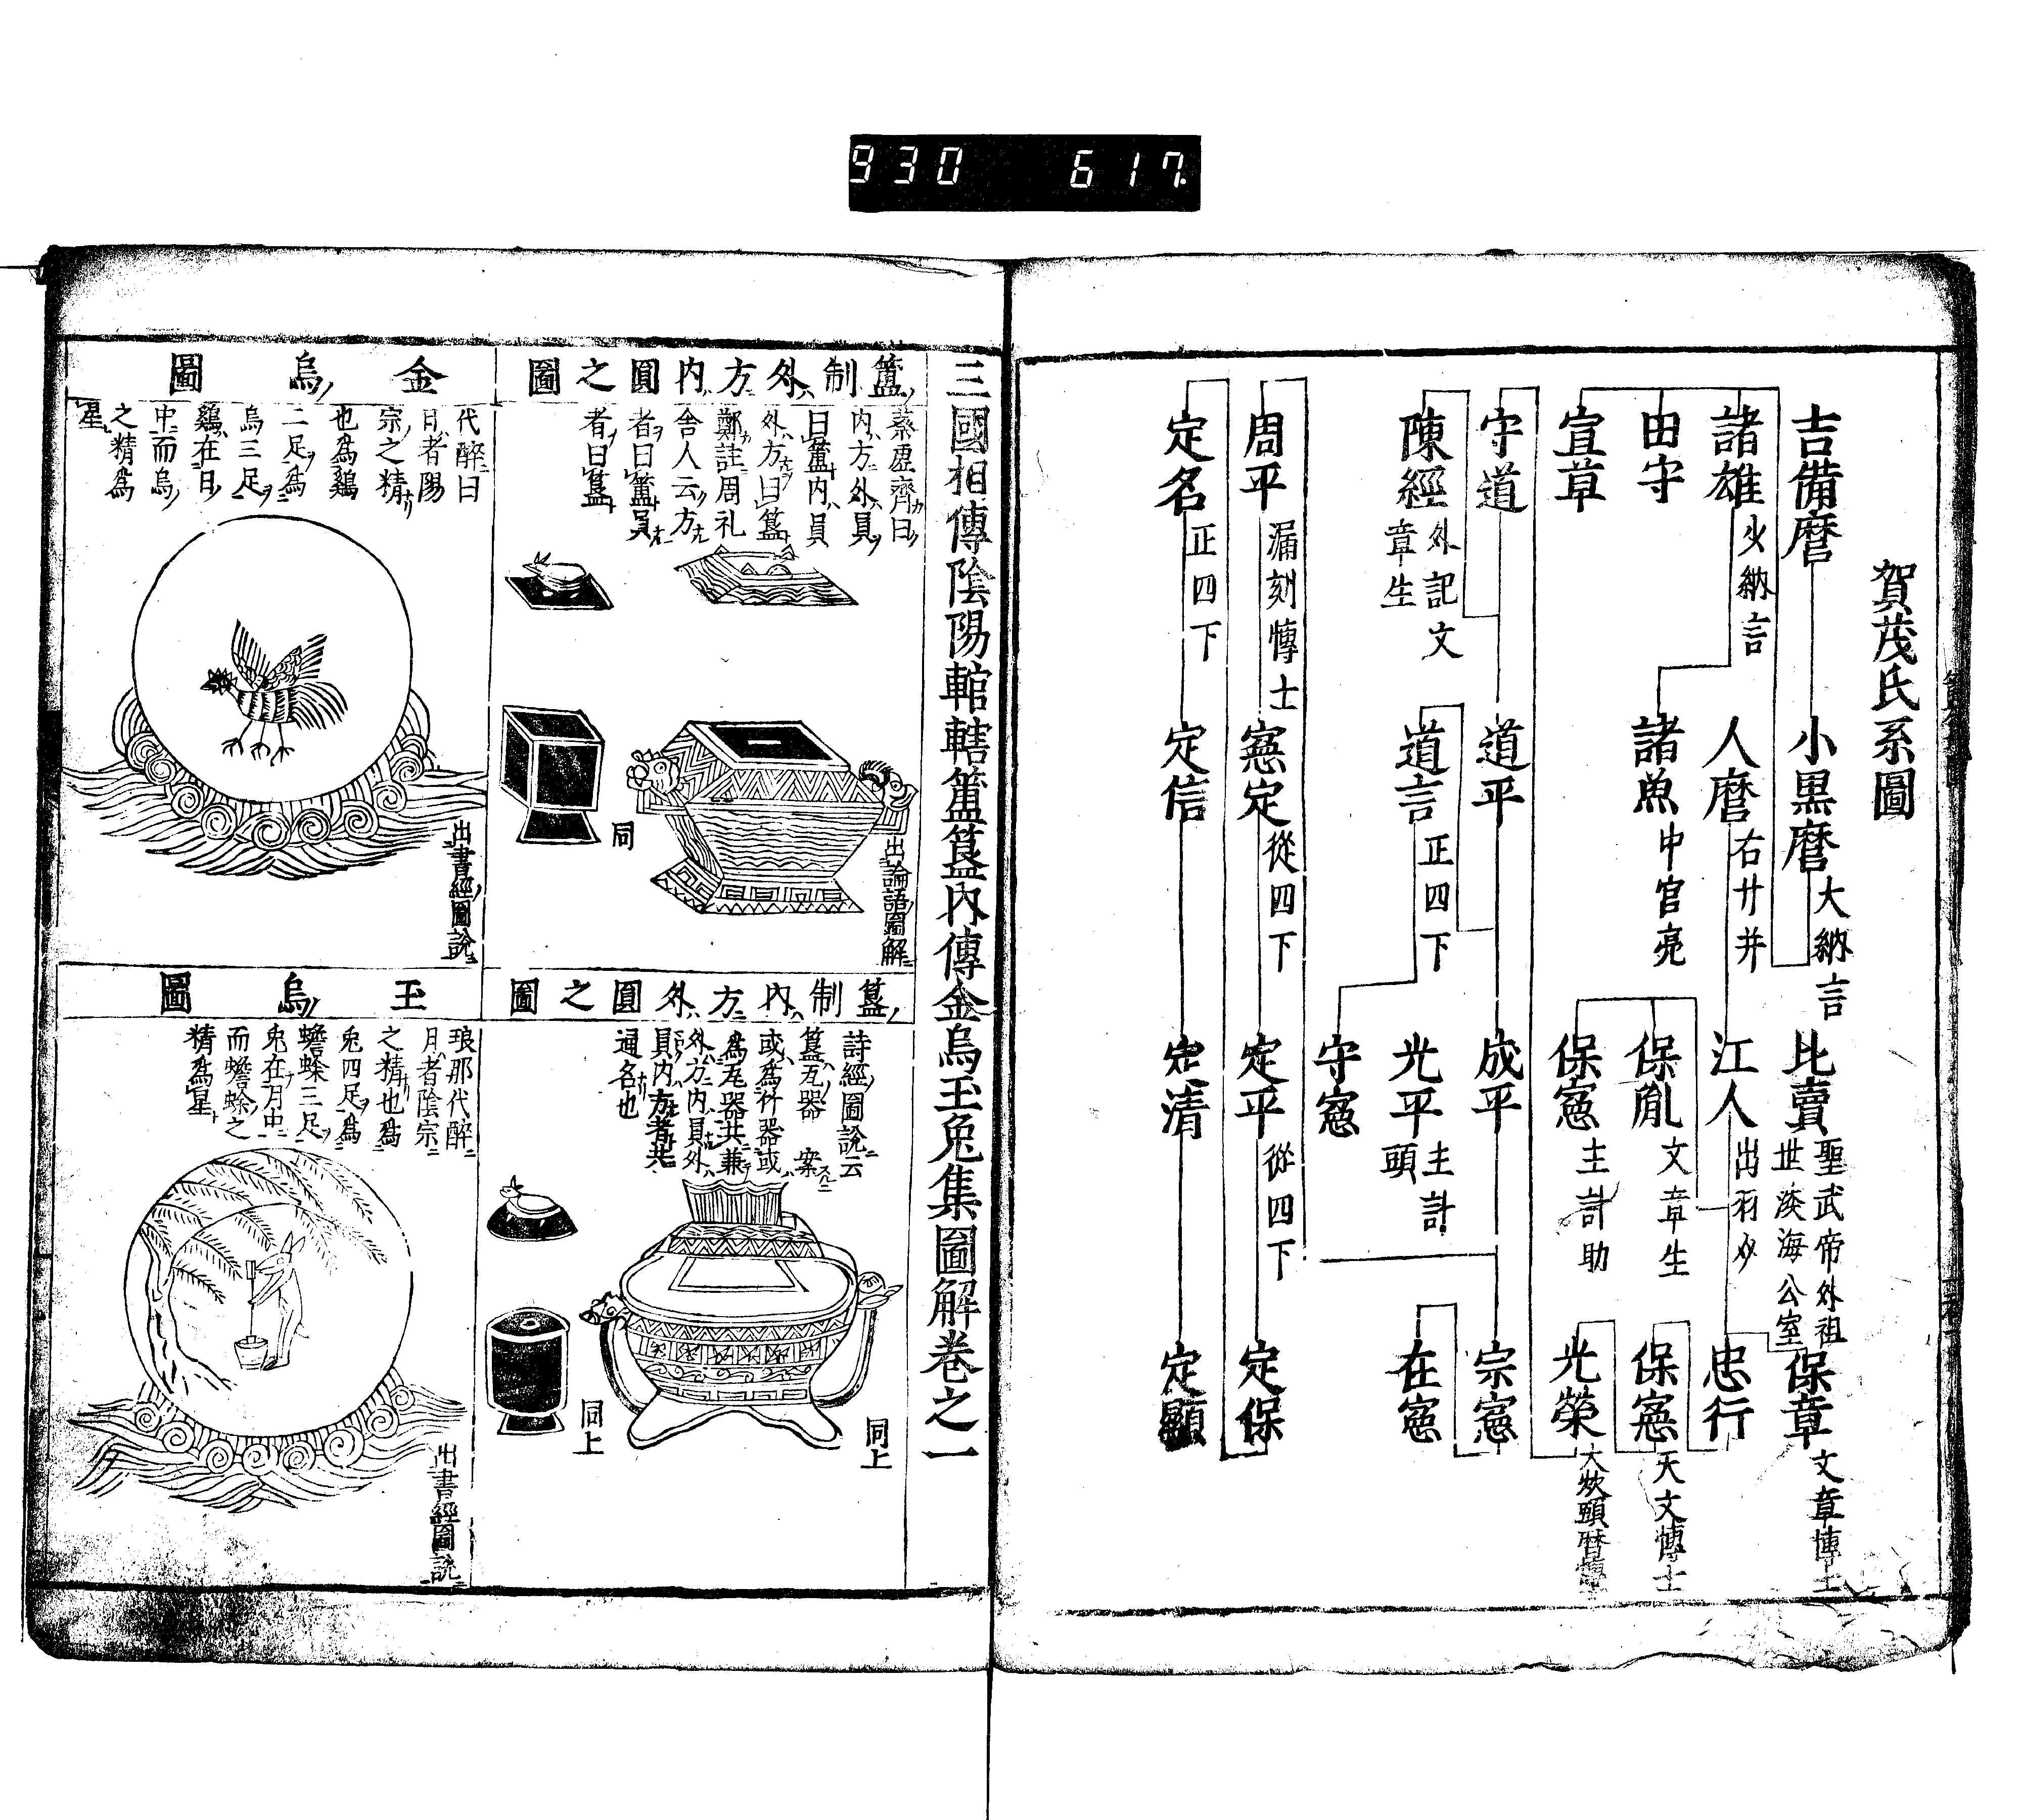 930 617
賀茂氏系圖
吉備麿
小黒麿 大納言
比賣 聖武帝外祖
世淡海公室
保章 文章博士
諸雄 少納言
人麿 右廾并
江人 出羽少
忠行
田守
諸魚 中宮亮
保胤 文章生
保憲 天文博士
宣草
保憲 主計助
光榮 大炊頭暦博士
守道
道平
成平
宗憲
陳經 外記文
章生
道言 正四下
光平 主計
頭
在憲
守憲
周平 漏刻博士
憲定 從四下
定平 從四下
定保
定名 正四下
定信
定清
定顯
三國相傳陰陽輨轄簠簋內傳金烏玉兔集圖解卷之一
簠制外方内圓之圖
蔡虛齊曰
内方外員
曰簠内員
外方曰簋
鄭註周礼
舎人云方
者曰簠員
者曰簋
同
出論語圖解
簋制內方外圓之圖
詩經圖說云
簋瓦器 案
或為竹器或
為瓦器共兼
外方内員外
員内方者共
通名也
同上
同上
金烏圖
代醉曰
日者陽
宗之精
也為鷄
二足為
烏三足
鷄在日
中而烏
之精為
星
出書經圖說
玉烏圖
琅那代醉
月者陰宗
之精也為
兔四足為
蟾蜍三足
兔在月中
而蟾蜍之
精為星
出書經圖說